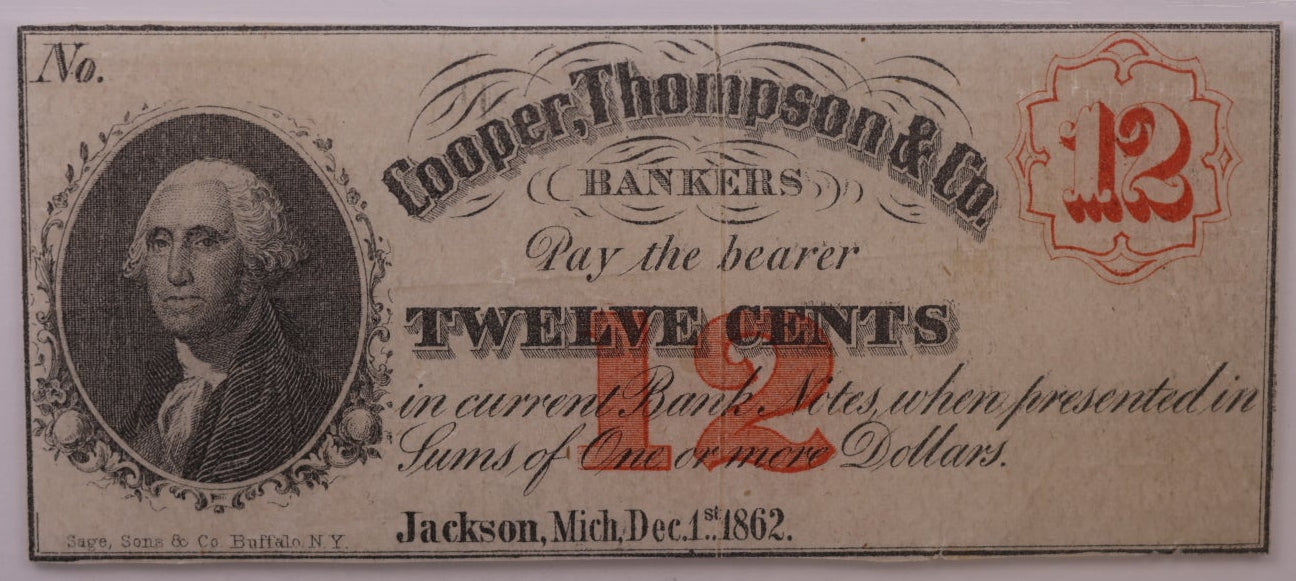 No.
Cooper, Thompson & Co.
12
BANKERS
Pay the bearer
TWELVE CENTS
12
in current Bank Notes, when presented in
Sums of One or more Dollars.
Jackson, Mich, Dec. 1st. 1862.
Sage, Sons & Co Buffalo, N.Y.